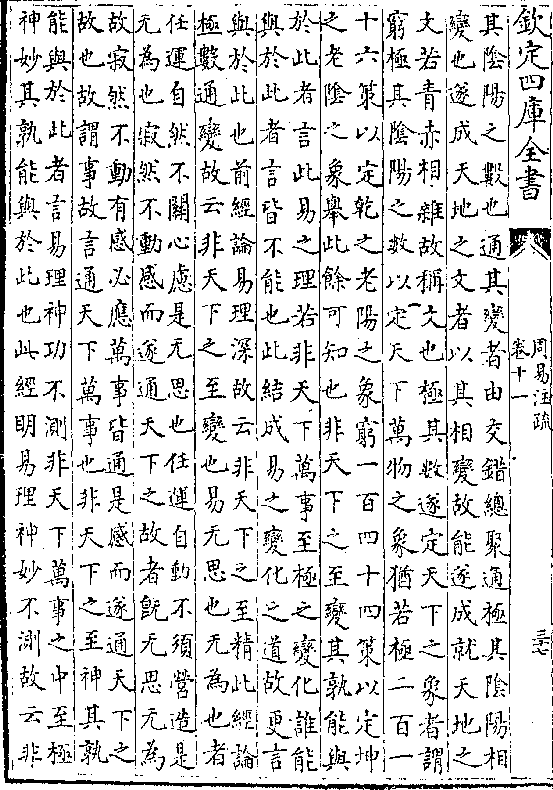 欽定四庫全書
周易注疏
卷十一
三十七
其陰陽之數也通其變者由交錯總聚通極其陰陽相
變也遂成天地之文者以其相變故能遂成就天地之
文若青赤相雜故稱文也極其數遂定天下之象者謂
窮極其陰陽之數以定天下萬物之象猶若極二百一
十六策以定乾之老陽之象窮一百四十四策以定坤
之老陰之象舉此餘可知也非天下之至變其孰能與
於此者言此易之理若非天下萬事至極之變化誰能
與於此者言皆不能也此結成易之變化之道故更言
與於此也前經論易理深故云非天下之至精此經論
極數通變故云非天下之至變也易无思也无為也者
任運自然不關心慮是无思也任運自動不須營造是
无為也寂然不動感而遂通天下之故者旣无思无為
故寂然不動有感必應萬事皆通是感而遂通天下之
故也故謂事故言通天下萬事也非天下之至神其孰
能與於此者言易理神功不測非天下萬事之中至極
神妙其孰能與於此也此經明易理神妙不測故云非